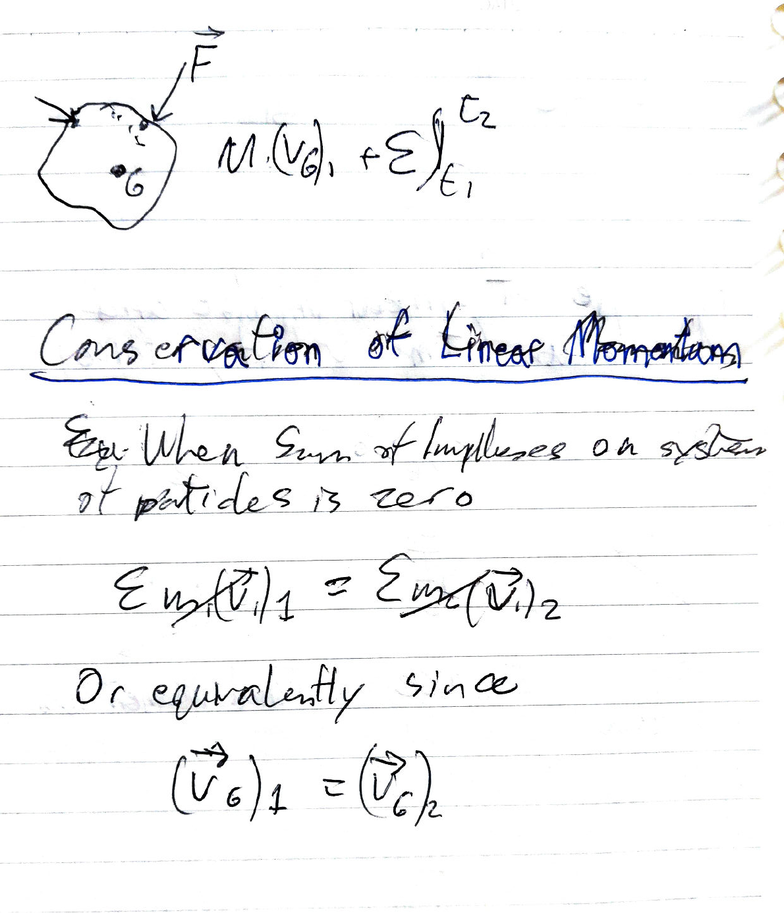 F⃗
G
M.(V_G)₁ + Σ∫_{t₁}^{t₂}
Conservation of Linear Momentum
When Sum of Impluses on system
of paticles is zero
Σ m_i(V⃗_i)₁ = Σ m_i(V⃗_i)₂
Or equivalently since
(V⃗_G)₁ = (V⃗_G)₂